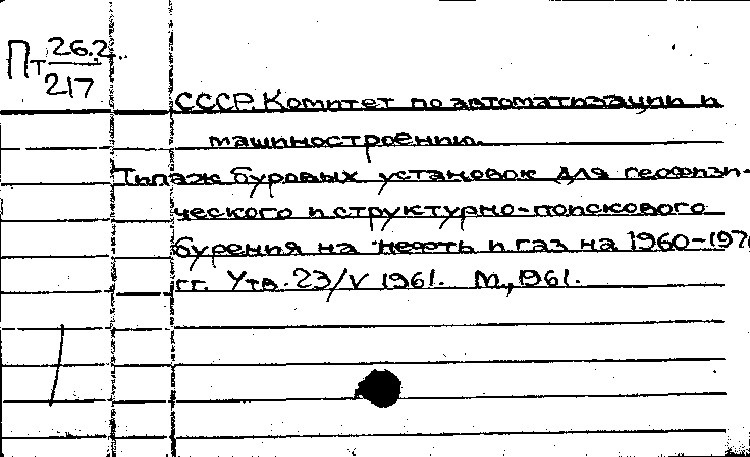 Пт 26.2
217
СССР. Комитет по автоматизации и
машиностроению.
Типаж буровых установок для геофизи-
ческого и структурно-поискового
бурения на нефть и газ на 1960-197
гг. Утв. 23/V 1961. М., 1961.